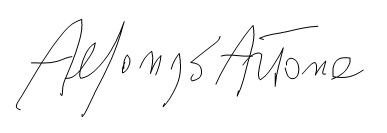 Alfonso Artone